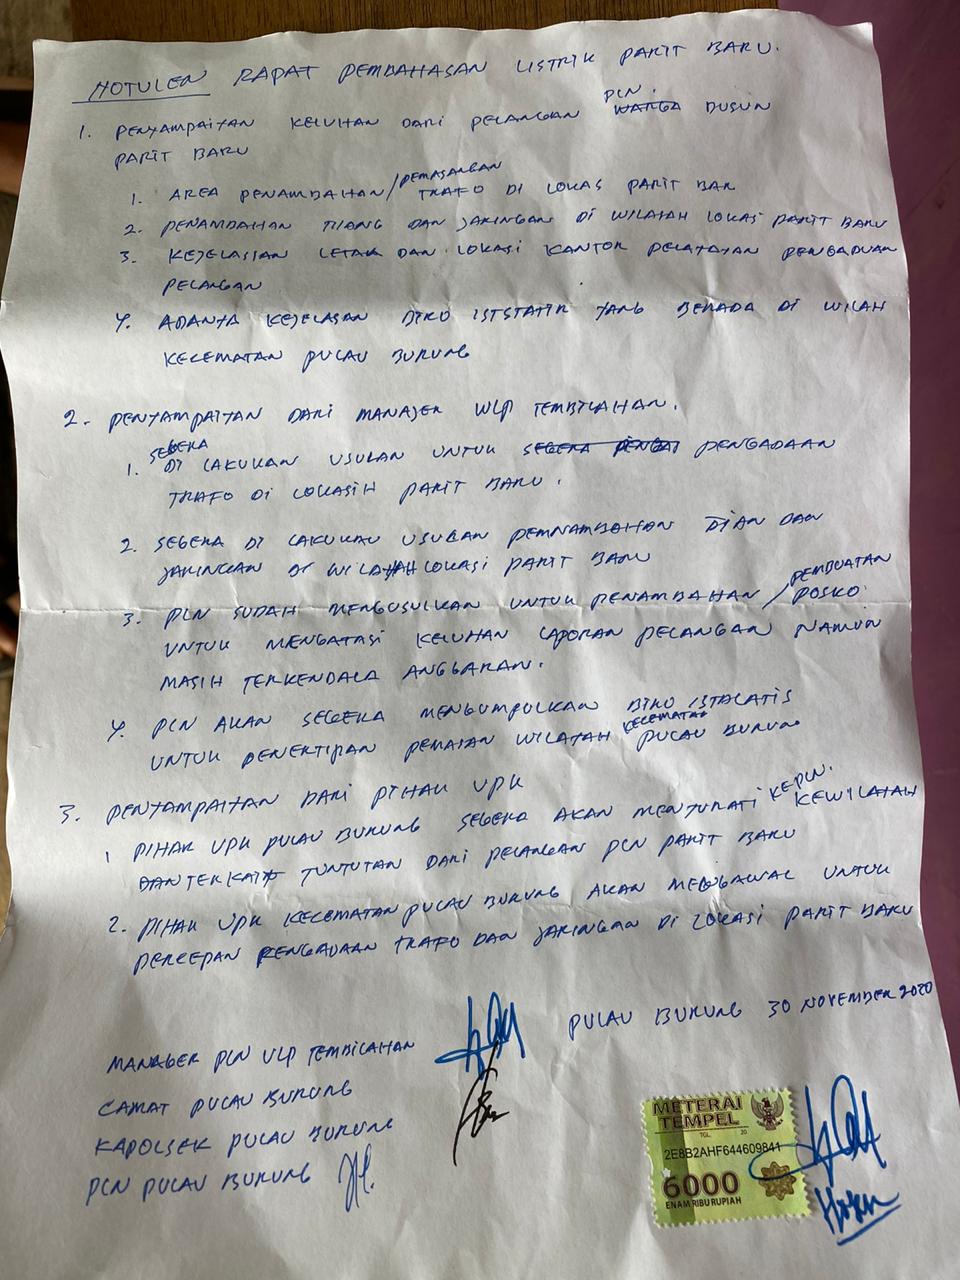 NOTULEN RAPAT PEMBAHASAN LISTRIK PARIT BARU.
1. PENYAMPAIYAN KELUHAN DARI PELANGGAN PLN. WARGA DUSUN
PARIT BARU
1. AREA PENAMBAHAN / PEMASANGAN TRAFO DI LOKAS PARIT BAR
2. PENAMBAHAN TIANG DAN JARINGAN DI WILAIAH LOKAS PARIT BARU
3. KEJELASIAN LETAK DAN LOKASI KANTOR PELAYAYAN PENGADUAN
PELANGAN
4. ADANYA KEJELASAN BIRO ISTSTATIR YANG BERADA DI WILAH
KECEMATAN PULAU BURUNG
2. PENYAMPAITAN DARI MANAJER WLP TEMBILAHAN.
1. SEGERA DI LAKUKAN USULAN UNTUK SEGERA PENGAD PENGADAAN
TRAFO DI LOKASIH PARIT BARU.
2. SEGERA DI LAKUKAU USULAN PEMNAMBAHAN DIAN DAN
JARINGAN DI WILAYAH LOKASI PARIT BARU
3. PLN SUDAH MENGUSULKAN UNTUK PENAMBAHAN / PEMBUATAN POSKO
UNTUK MENGATASI KELUHAN LAPORAN PELANGAN NAMUN
MASIH TERKENDALA ANGGARAN.
4. PLN AKAN SEGERA MENGUMPULKAN BIRO ISTALATIS
UNTUK PENERTIPAN PEMAIAN WILAYAH KECEMATAN PULAU BURUNG
3. PENYAMPAITAN DARI PIHAK UPK
1 PIHAK UPK PULAU BURUNG SEGERA AKAN MENYURATI KEPLN. KEWILAYAH
DAN TERKAIT TUNTUTAN DARI PELANGAN PLN PARIT BARU
2. PIHAK UPK KECEMATAN PULAU BURUNG AKAN MENGAWAL UNTUK
PERCEPAN PENGADAAN TRAFO DAN JARINGAN DI LOKASI PARIT BARU
PULAU BURUNG 30 NOVEMBER 2020
MANAGER PLN ULP TEMBILAHAN
CAMAT PULAU BURUNG
KAPOLSEK PULAU BURUNG
PLN PULAU BURUNG
METERAI
TEMPEL
TGL. 20
2E8B2AHF644609841
6000
ENAM RIBU RUPIAH